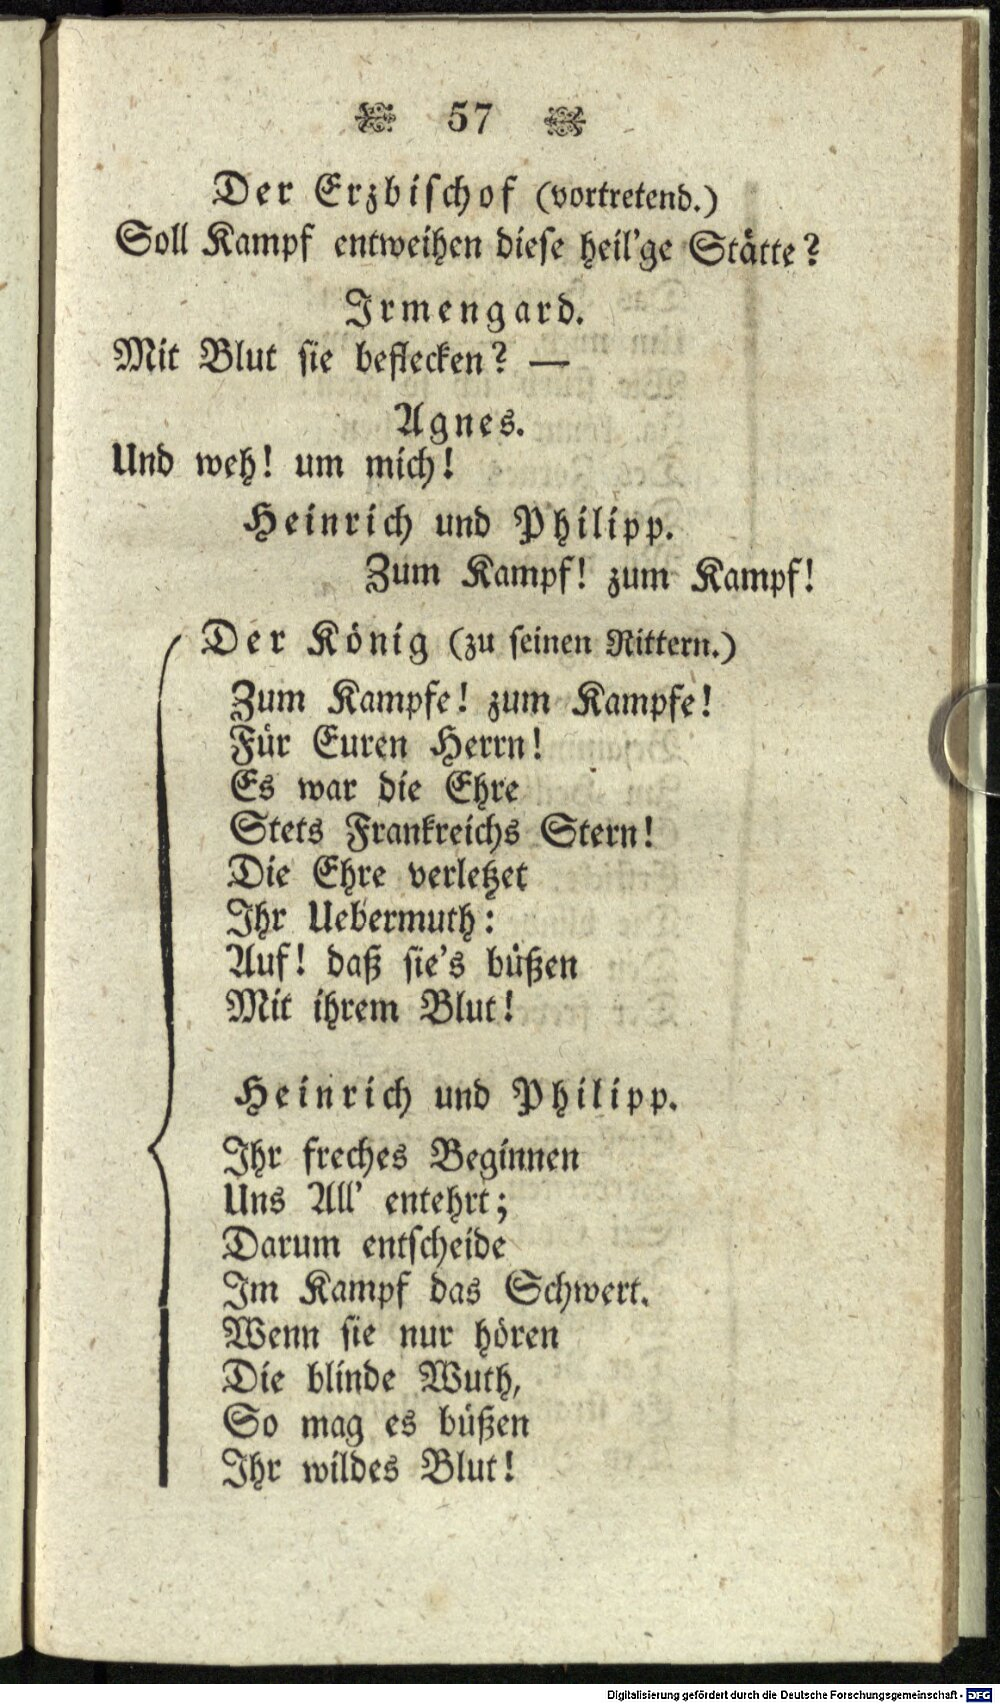 57
Der Erzbischof (vortretend.)
Soll Kampf entweihen diese heil'ge Stätte?
Irmengard.
Mit Blut sie beflecken? —
Agnes.
Und weh! um mich!
Heinrich und Philipp.
Zum Kampf! zum Kampf!
Der König (zu seinen Rittern.)
Zum Kampfe! zum Kampfe!
Für Euren Herrn!
Es war die Ehre
Stets Frankreichs Stern!
Die Ehre verletzet
Ihr Uebermuth:
Auf! daß sie's büßen
Mit ihrem Blut!
Heinrich und Philipp.
Ihr freches Beginnen
Uns All' entehrt;
Darum entscheide
Im Kampf das Schwert.
Wenn sie nur hören
Die blinde Wuth,
So mag es büßen
Ihr wildes Blut!
Digitalisierung gefördert durch die Deutsche Forschungsgemeinschaft - DFG